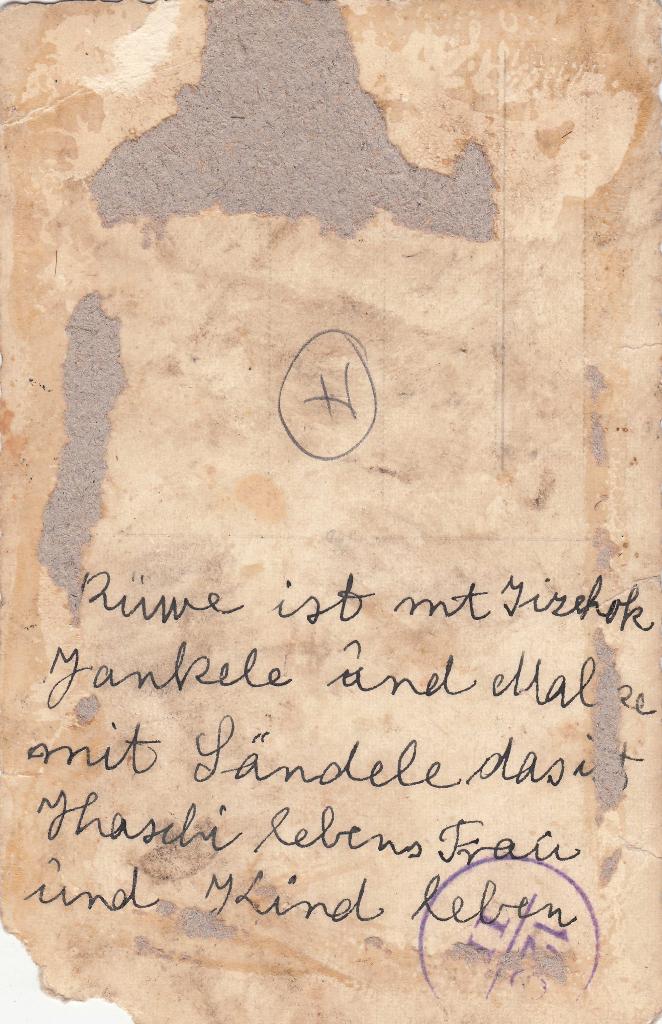 H
Rüwe ist mt Jizchok
Jankele ûnd Malke
mit Sändele das ist
Khaschi lebens Fraû
ûnd Kind leben